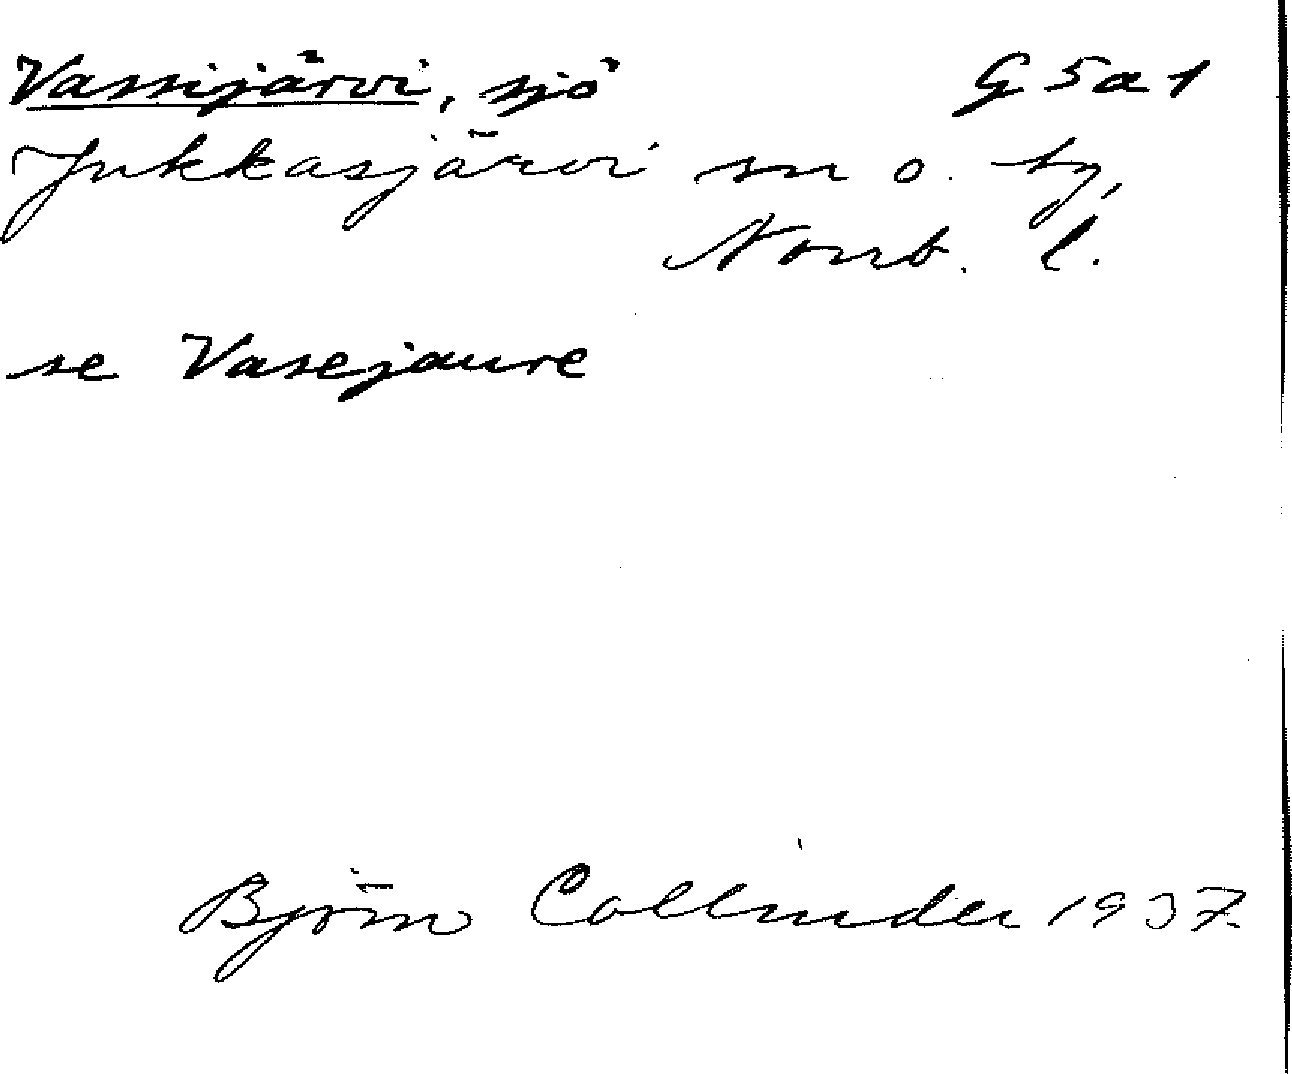 Vassijärvi, sjö G5a1
Jukkasjärvi sn o. by,
Norrb. l.
se Vasejaure
Björn Collinder 1937.